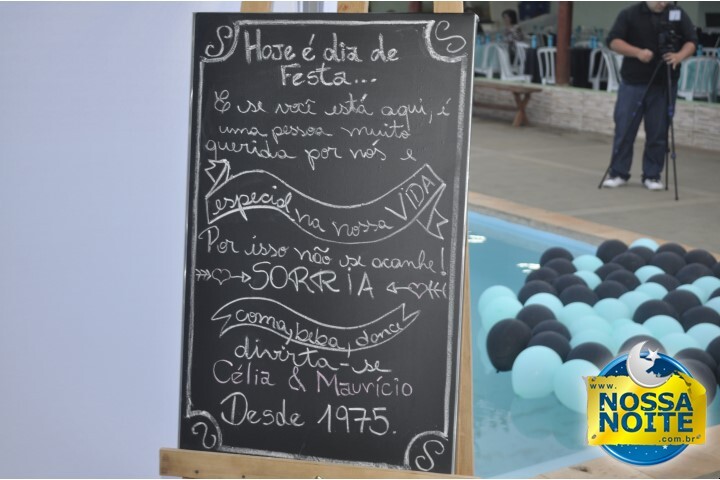 Hoje é dia de
Festa...
E se você está aqui, é
uma pessoa muito
querida por nós e
especial na nossa VIDA
Por isso não se acanhe!
SORRIA
coma, beba, dance
divirta-se
Célia & Maurício
Desde 1975.
www.
NOSSA
NOITE
.com.br